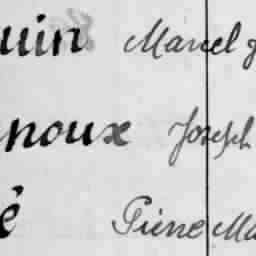 uin Marcel g
noux Joseph
é Pierre Ma